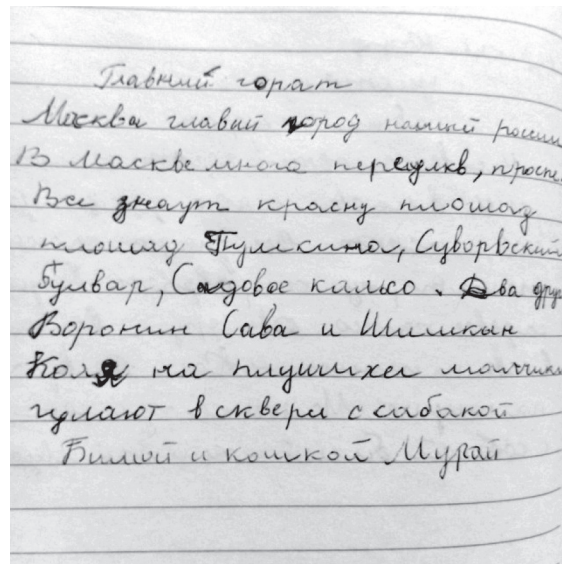 Главний горат
Москва главий город нашей россии
В Маскве многа переулкв, проспе
Все знаут красну площаз
площад Пушкина, Суворвский
Булвар, Садовое калцо. Два друг
Воронин Сава и Шишкын
Коля на плущихе малчики
гулают в сквери с сабакой
Бимой и кошкой Мурай